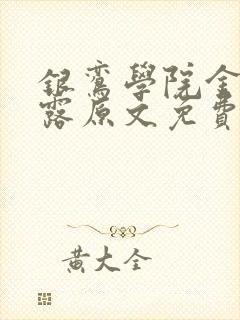 銀鸞學院金
露原文免費
黃大全